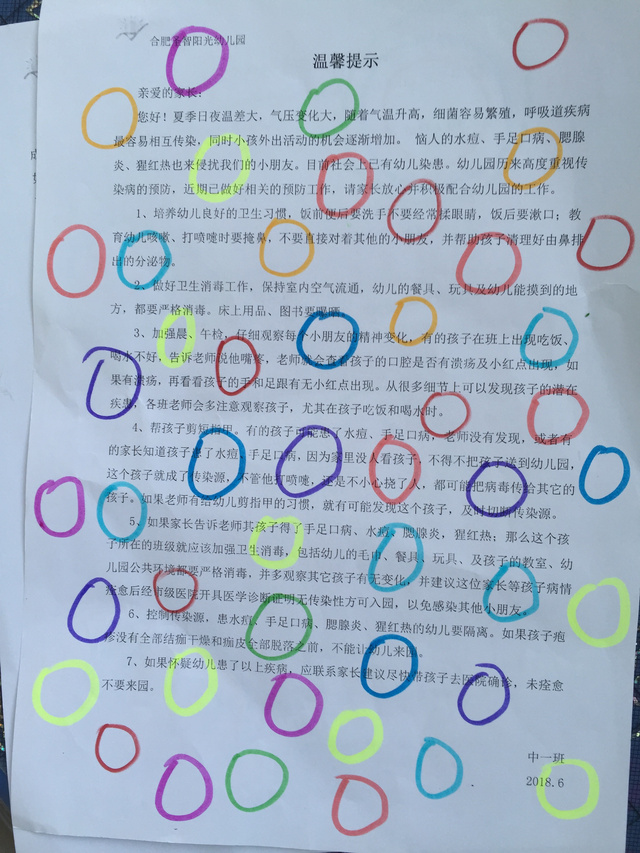 合肥圣智阳光幼儿园
温馨提示
亲爱的家长:
您好！夏季日夜温差大，气压变化大，随着气温升高，细菌容易繁殖，呼吸道疾病
最容易相互传染，同时小孩外出活动的机会逐渐增加。 恼人的水痘、手足口病、腮腺
炎、猩红热也来侵扰我们的小朋友。目前社会上已有幼儿染患。幼儿园历来高度重视传
染病的预防，近期已做好相关的预防工作，请家长放心并积极配合幼儿园的工作。
1、培养幼儿良好的卫生习惯，饭前便后要洗手不要经常揉眼睛，饭后要漱口；教
育幼儿咳嗽、打喷嚏时要掩鼻，不要直接对着其他的小朋友，并帮助孩子清理好由鼻排
出的分泌物。
2、做好卫生消毒工作，保持室内空气流通，幼儿的餐具、玩具及幼儿能摸到的地
方，都要严格消毒。床上用品、图书要曝晒。
3、加强晨、午检，仔细观察每个小朋友的精神变化，有的孩子在班上出现吃饭、
喝水不好，告诉老师说他嘴疼，老师就会查看孩子的口腔是否有溃疡及小红点出现，如
果有溃疡，再看看孩子的手和足跟有无小红点出现。从很多细节上可以发现孩子的潜在
疾患，各班老师会多注意观察孩子，尤其在孩子吃饭和喝水时。
4、帮孩子剪短指甲。有的孩子可能患了水痘、手足口病，老师没有发现，或者有
的家长知道孩子患了水痘、手足口病，因为家里没人看孩子，不得不把孩子送到幼儿园，
这个孩子就成了传染源，不管他打喷嚏，还是不小心挠了人，都可能把病毒传给其它的
孩子。如果老师有给幼儿剪指甲的习惯，就有可能发现这个孩子，及时切断传染源。
5、如果家长告诉老师其孩子得了手足口病、水痘、腮腺炎，猩红热；那么这个孩
子所在的班级就应该加强卫生消毒，包括幼儿的毛巾、餐具、玩具、及孩子的教室、幼
儿园公共环境都要严格消毒，并多观察其它孩子有无变化，并建议这位家长等孩子病情
痊愈后经市级医院开具医学诊断证明无传染性方可入园，以免感染其他小朋友。
6、控制传染源，患水痘、手足口病、腮腺炎、猩红热的幼儿要隔离。如果孩子疱
疹没有全部结痂干燥和痂皮全部脱落之前，不能让幼儿来园。
7、如果怀疑幼儿患了以上疾病，应联系家长建议尽快带孩子去医院确诊，未痊愈
不要来园。
中一班
2018.6